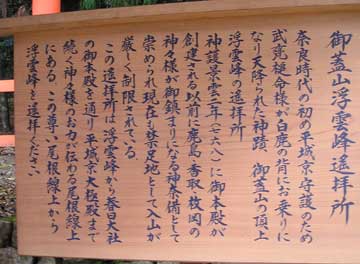 御蓋山浮雲峰の遥拝所
奈良時代の初め平城京守護のため
武甕槌命様が白鹿の背にお乗りに
なり天降られた神蹟 御蓋山の頂上
浮雲峰の遥拝所
神護景雲二年(七六八)に御本殿が
創建される以前に鹿島 香取 枚岡の
神々様が御鎮まりになる神奈備として
崇められ現在も禁足地として入山が
厳しく制限されている
この遥拝所は浮雲峰から春日大社
の御本殿を通り平城京大極殿まで
続く神々様のお力が伝わる尾根線上
にある この尊い尾根線上から
浮雲峰を遥拝ください